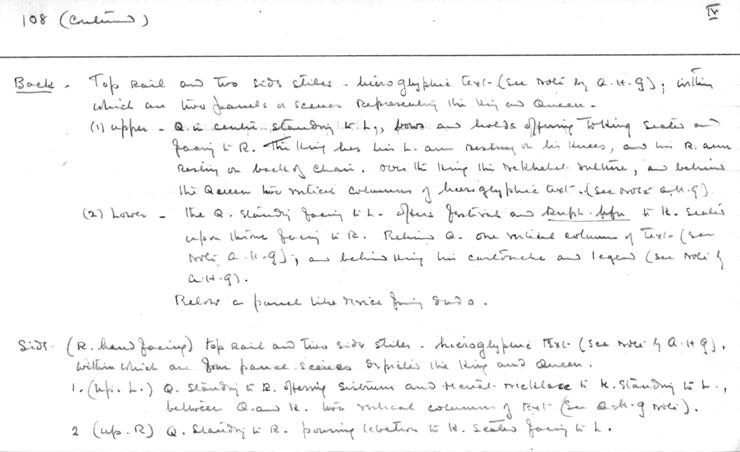 108 (Continued) IV
Back - Top rail and two side stiles - hieroglyphic text - (see note by A.H.G); within
which are two panels or scenes representing the King and Queen -
(1) upper - Q. in centre standing to L., and holds offering to King seated and
facing to R. The King has his L. arm resting on his knees, and his R. arm
resting on back of chair. Over the King the Nekhebet vulture, and behind
the Queen two vertical columns of hieroglyphic text. (see note A.H.G).
(2) Lower - The Q. standing facing to L. offers festival and to K. seated
upon throne facing to R. Behind Q. one vertical column of text - (see
note A.H.G); and behind King his cartouche and legend (see note by
A.H.G).
Below a panel like device forming dado.
Side. (R. hand facing) top rail and two side stiles - hieroglyphic text (see note by A.H.G),
within which are four panel-scenes depicting the King and Queen.
1. (up. L.) Q. standing to R. offering sistrum and menat-necklace to K. standing to L.,
between Q. and K. two vertical columns of text (see A.H.G note).
2 (up. R) Q. standing to R. pouring libation to K. seated facing to L.